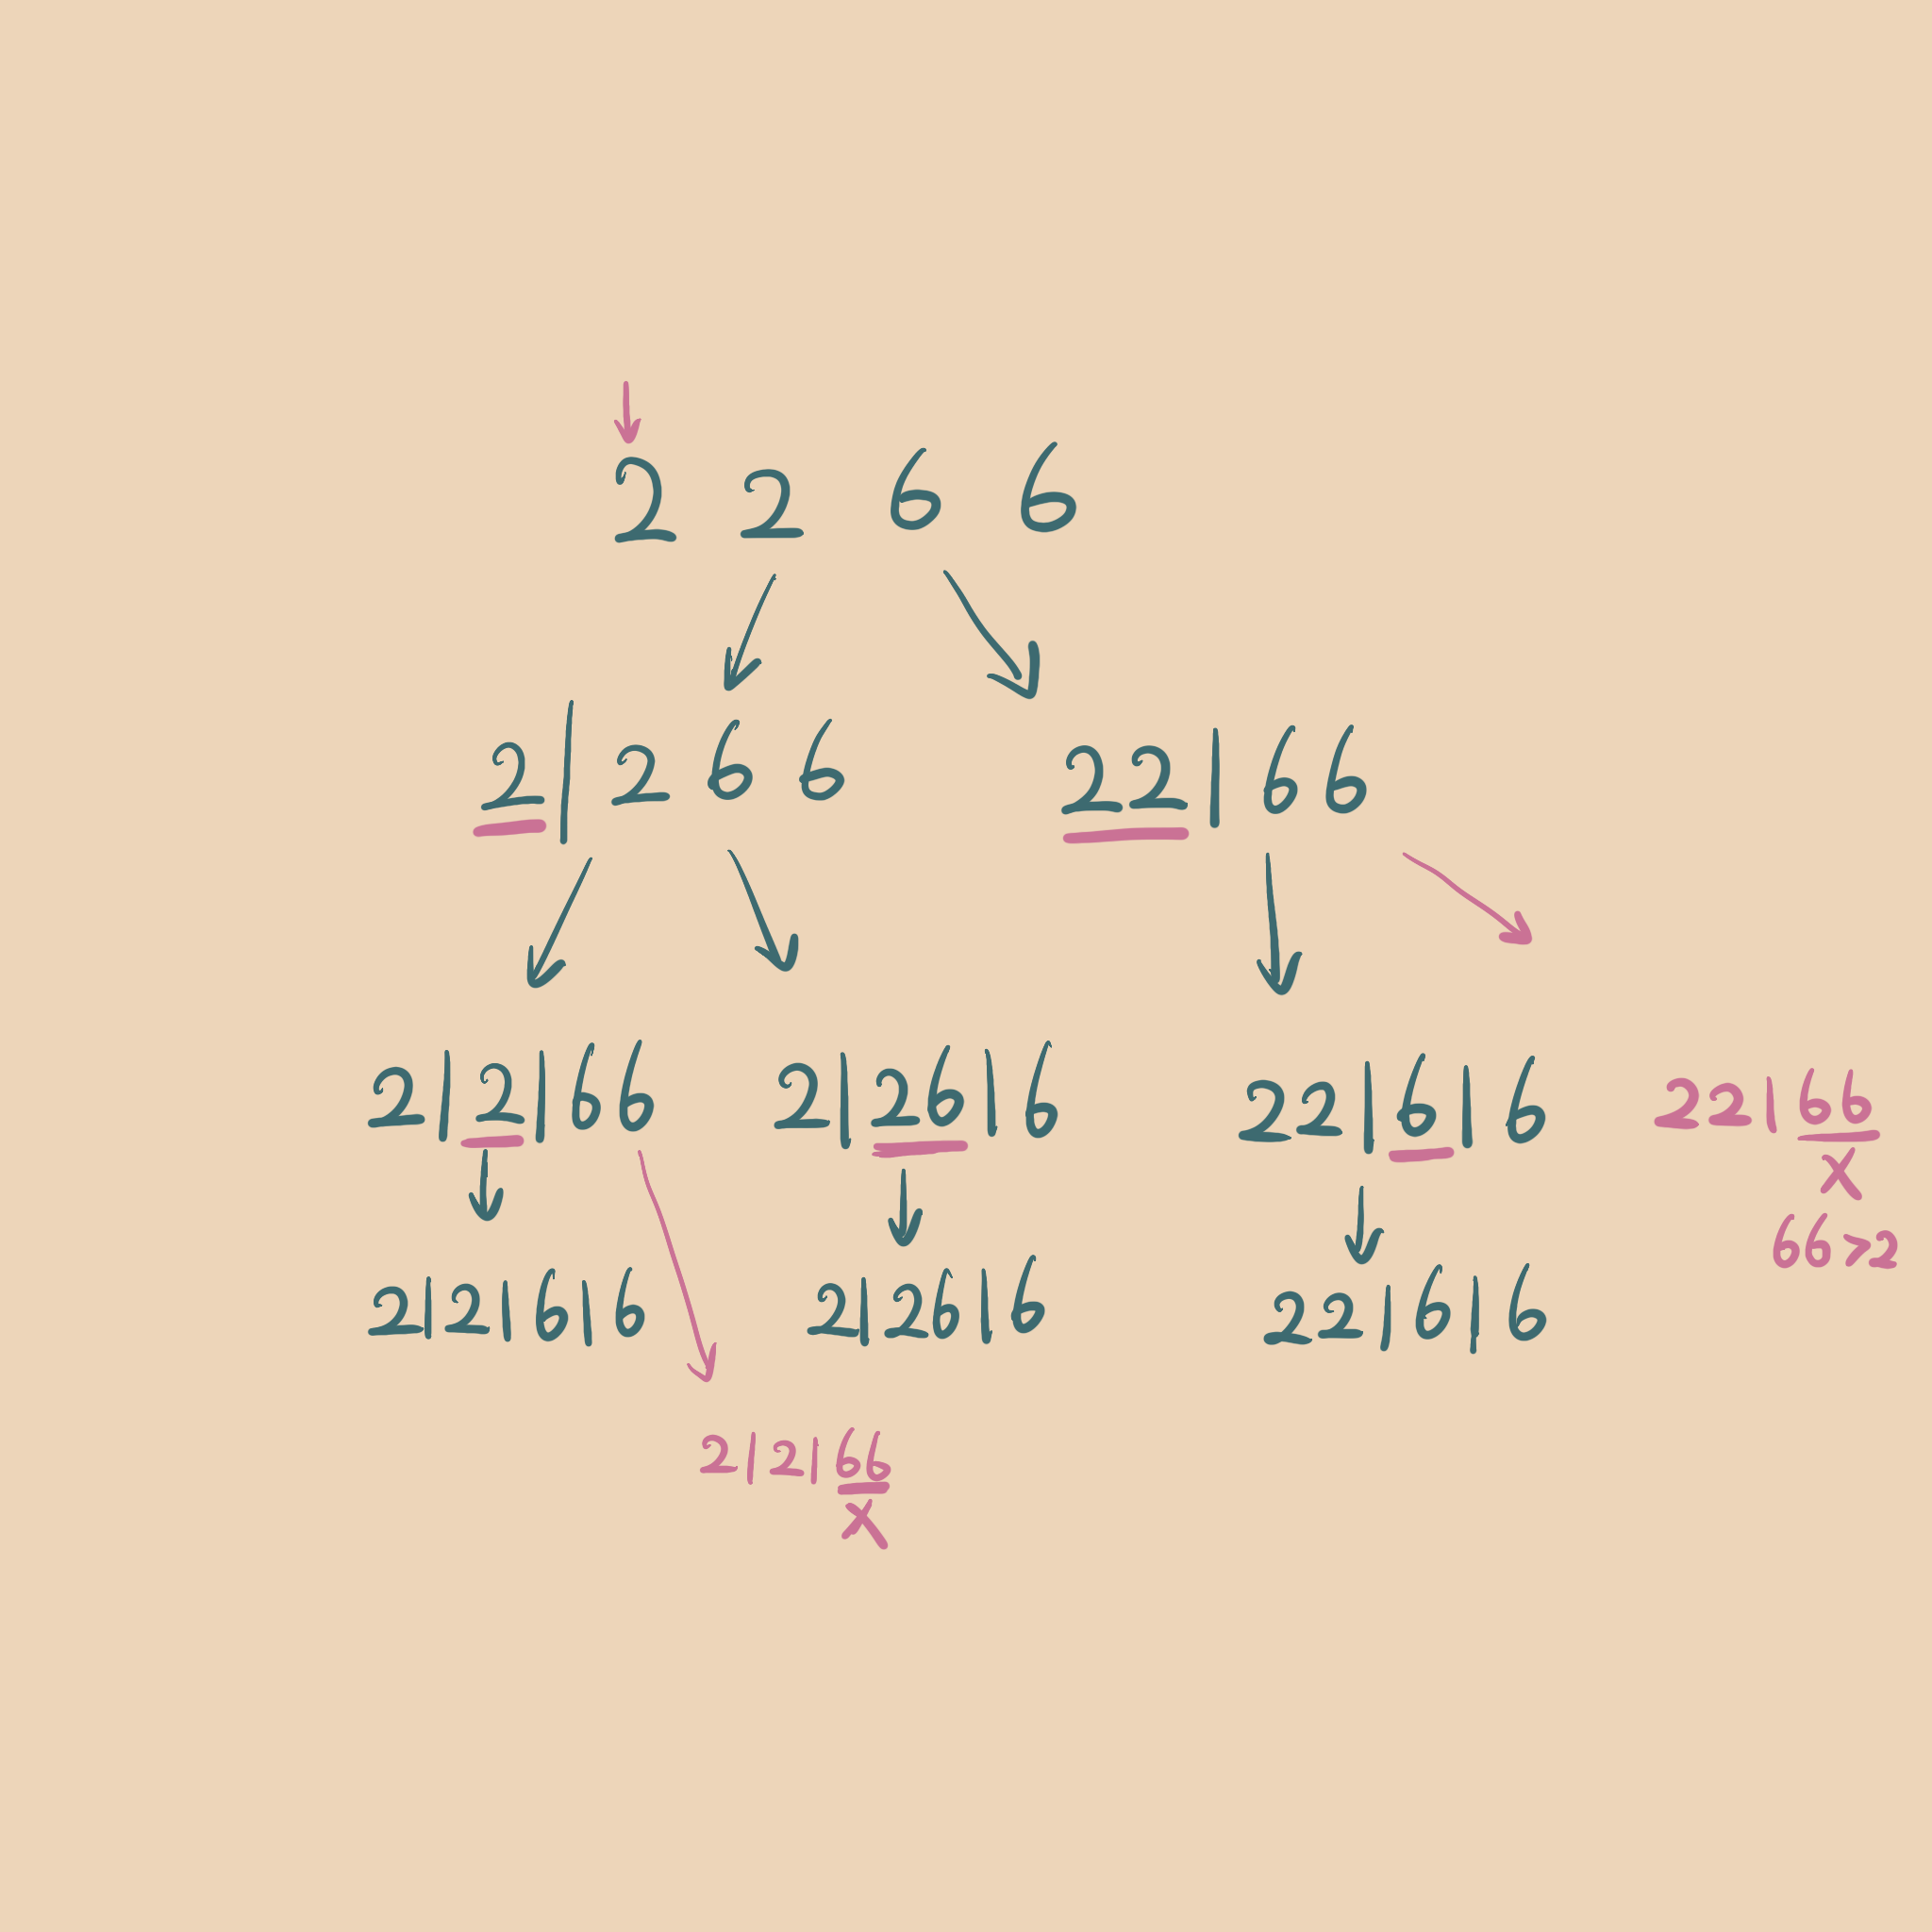 2 2 6 6
2|266
22|66
2|2|66
2|26|6
22|6|6
22|66
x
66>2
2|2|6|6
2|26|6
22|6|6
2|2|66
x